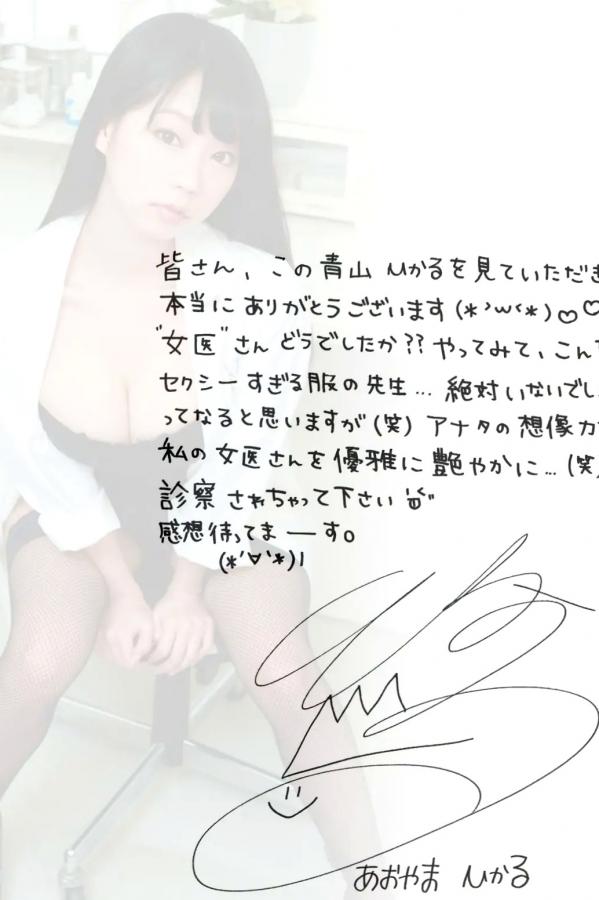 皆さん、この青山 ひかるを見ていただき
本当にありがとうございます(*'ω'*)♡♡
"女医"さん どうでしたか?? やってみて、こん
セクシーすぎる服の先生… 絶対いないでし
ってなると思いますが(笑) アナタの想像力
私の女医さんを優雅に艶やかに…(笑)
診察されちゃって下さい
感想待ってまーす。
(*'∀'*)ﾉ
あおやま ひかる